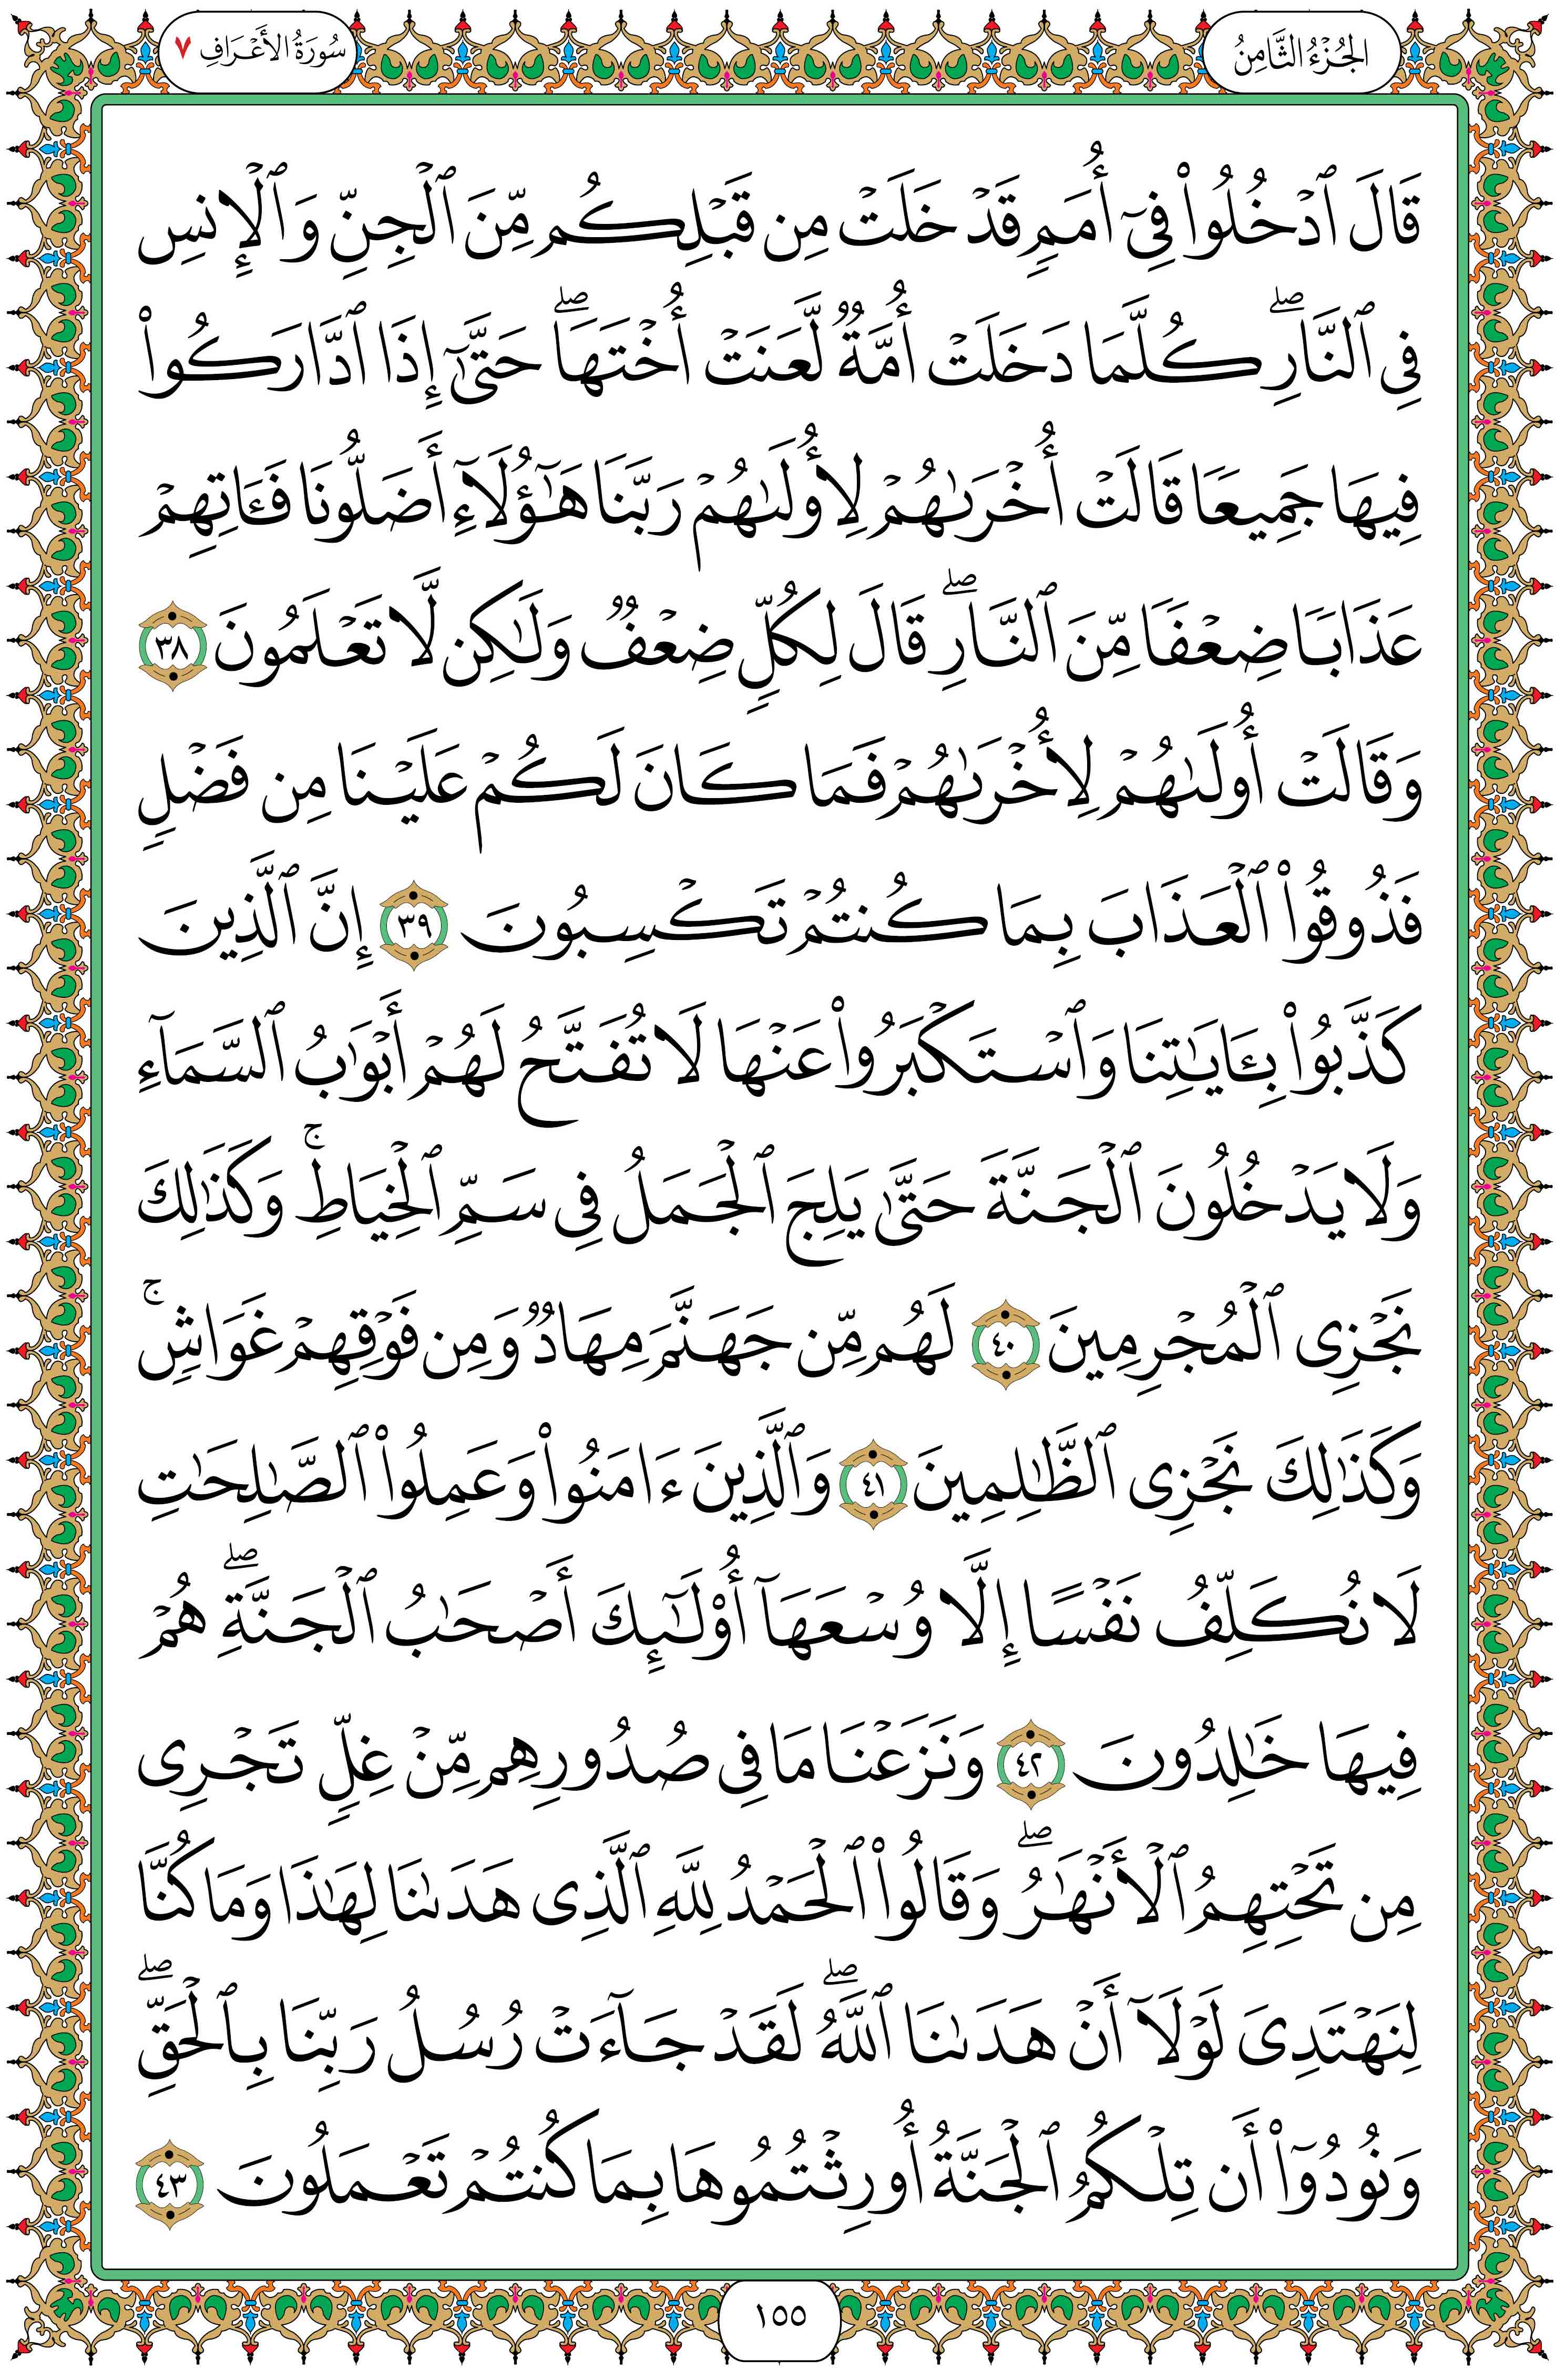 الجُزْءُ الثَّامِنُ
سُورَةُ الأَعْرَافِ ٧
قَالَ ٱدْخُلُوا۟ فِىٓ أُمَمٍۢ قَدْ خَلَتْ مِن قَبْلِكُم مِّنَ ٱلْجِنِّ وَٱلْإِنسِ
فِى ٱلنَّارِ ۖ كُلَّمَا دَخَلَتْ أُمَّةٌۭ لَّعَنَتْ أُخْتَهَا ۖ حَتَّىٰٓ إِذَا ٱدَّارَكُوا۟
فِيهَا جَمِيعًۭا قَالَتْ أُخْرَىٰهُمْ لِأُولَىٰهُمْ رَبَّنَا هَٰٓؤُلَآءِ أَضَلُّونَا فَـَٔاتِهِمْ
عَذَابًۭا ضِعْفًۭا مِّنَ ٱلنَّارِ ۖ قَالَ لِكُلٍّۢ ضِعْفٌۭ وَلَٰكِن لَّا تَعْلَمُونَ ٣٨
وَقَالَتْ أُولَىٰهُمْ لِأُخْرَىٰهُمْ فَمَا كَانَ لَكُمْ عَلَيْنَا مِن فَضْلٍۢ
فَذُوقُوا۟ ٱلْعَذَابَ بِمَا كُنتُمْ تَكْسِبُونَ ٣٩ إِنَّ ٱلَّذِينَ
كَذَّبُوا۟ بِـَٔايَٰتِنَا وَٱسْتَكْبَرُوا۟ عَنْهَا لَا تُفَتَّحُ لَهُمْ أَبْوَٰبُ ٱلسَّمَآءِ
وَلَا يَدْخُلُونَ ٱلْجَنَّةَ حَتَّىٰ يَلِجَ ٱلْجَمَلُ فِى سَمِّ ٱلْخِيَاطِ ۚ وَكَذَٰلِكَ
نَجْزِى ٱلْمُجْرِمِينَ ٤٠ لَهُم مِّن جَهَنَّمَ مِهَادٌۭ وَمِن فَوْقِهِمْ غَوَاشٍۢ ۚ
وَكَذَٰلِكَ نَجْزِى ٱلظَّٰلِمِينَ ٤١ وَٱلَّذِينَ ءَامَنُوا۟ وَعَمِلُوا۟ ٱلصَّٰلِحَٰتِ
لَا نُكَلِّفُ نَفْسًا إِلَّا وُسْعَهَآ أُو۟لَٰٓئِكَ أَصْحَٰبُ ٱلْجَنَّةِ ۖ هُمْ
فِيهَا خَٰلِدُونَ ٤٢ وَنَزَعْنَا مَا فِى صُدُورِهِم مِّنْ غِلٍّۢ تَجْرِى
مِن تَحْتِهِمُ ٱلْأَنْهَٰرُ ۖ وَقَالُوا۟ ٱلْحَمْدُ لِلَّهِ ٱلَّذِى هَدَىٰنَا لِهَٰذَا وَمَا كُنَّا
لِنَهْتَدِىَ لَوْلَآ أَنْ هَدَىٰنَا ٱللَّهُ ۖ لَقَدْ جَآءَتْ رُسُلُ رَبِّنَا بِٱلْحَقِّ ۖ
وَنُودُوٓا۟ أَن تِلْكُمُ ٱلْجَنَّةُ أُورِثْتُمُوهَا بِمَا كُنتُمْ تَعْمَلُونَ ٤٣
١٥٥